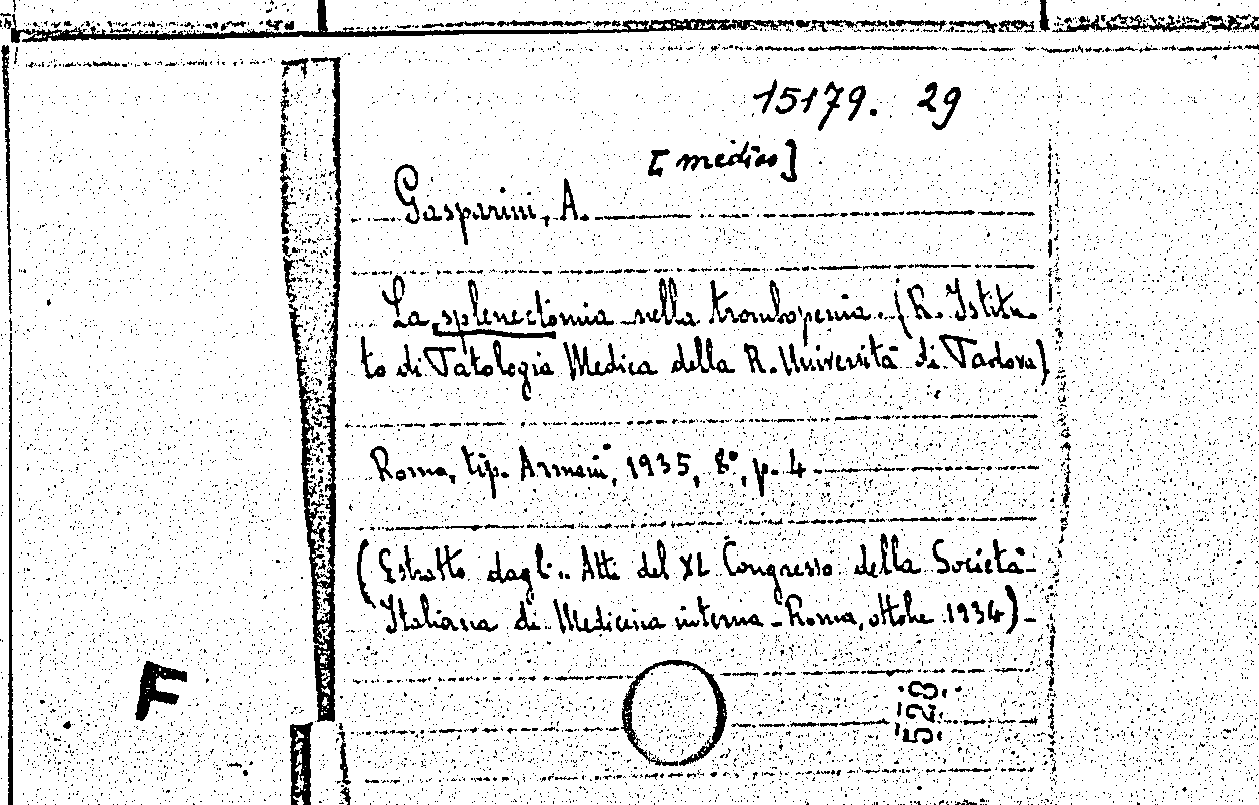 15179. 29
[medico]
Gasparini, A.
La splenectomia nella trombopenia. (R. Istitu-
to di Patologia Medica della R. Università di Padova)
Roma, tip. Armani, 1935, 8°, p. 4
(Estratto dagli.. Atti del XL Congresso della Società
Italiana di Medicina interna - Roma, ottobre 1934) -
F
528